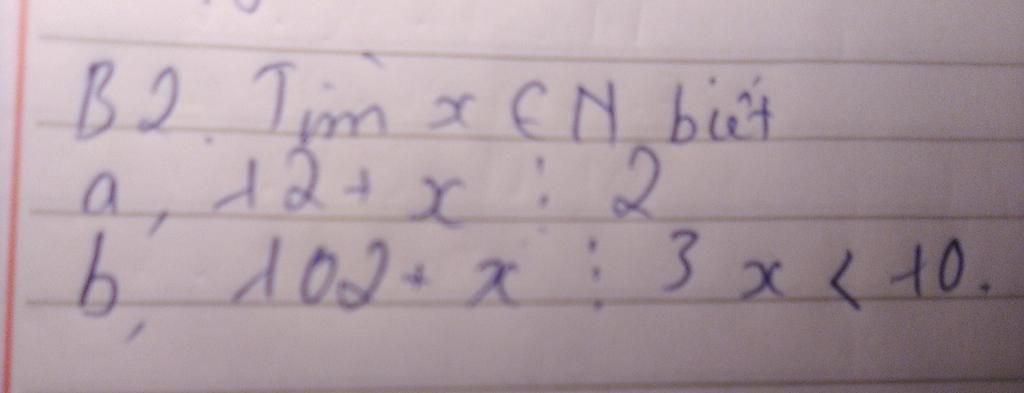 B2. Tìm x ∈ N biết
a, 12 + x ⋮ 2
b, 102 + x ⋮ 3 x < 10.